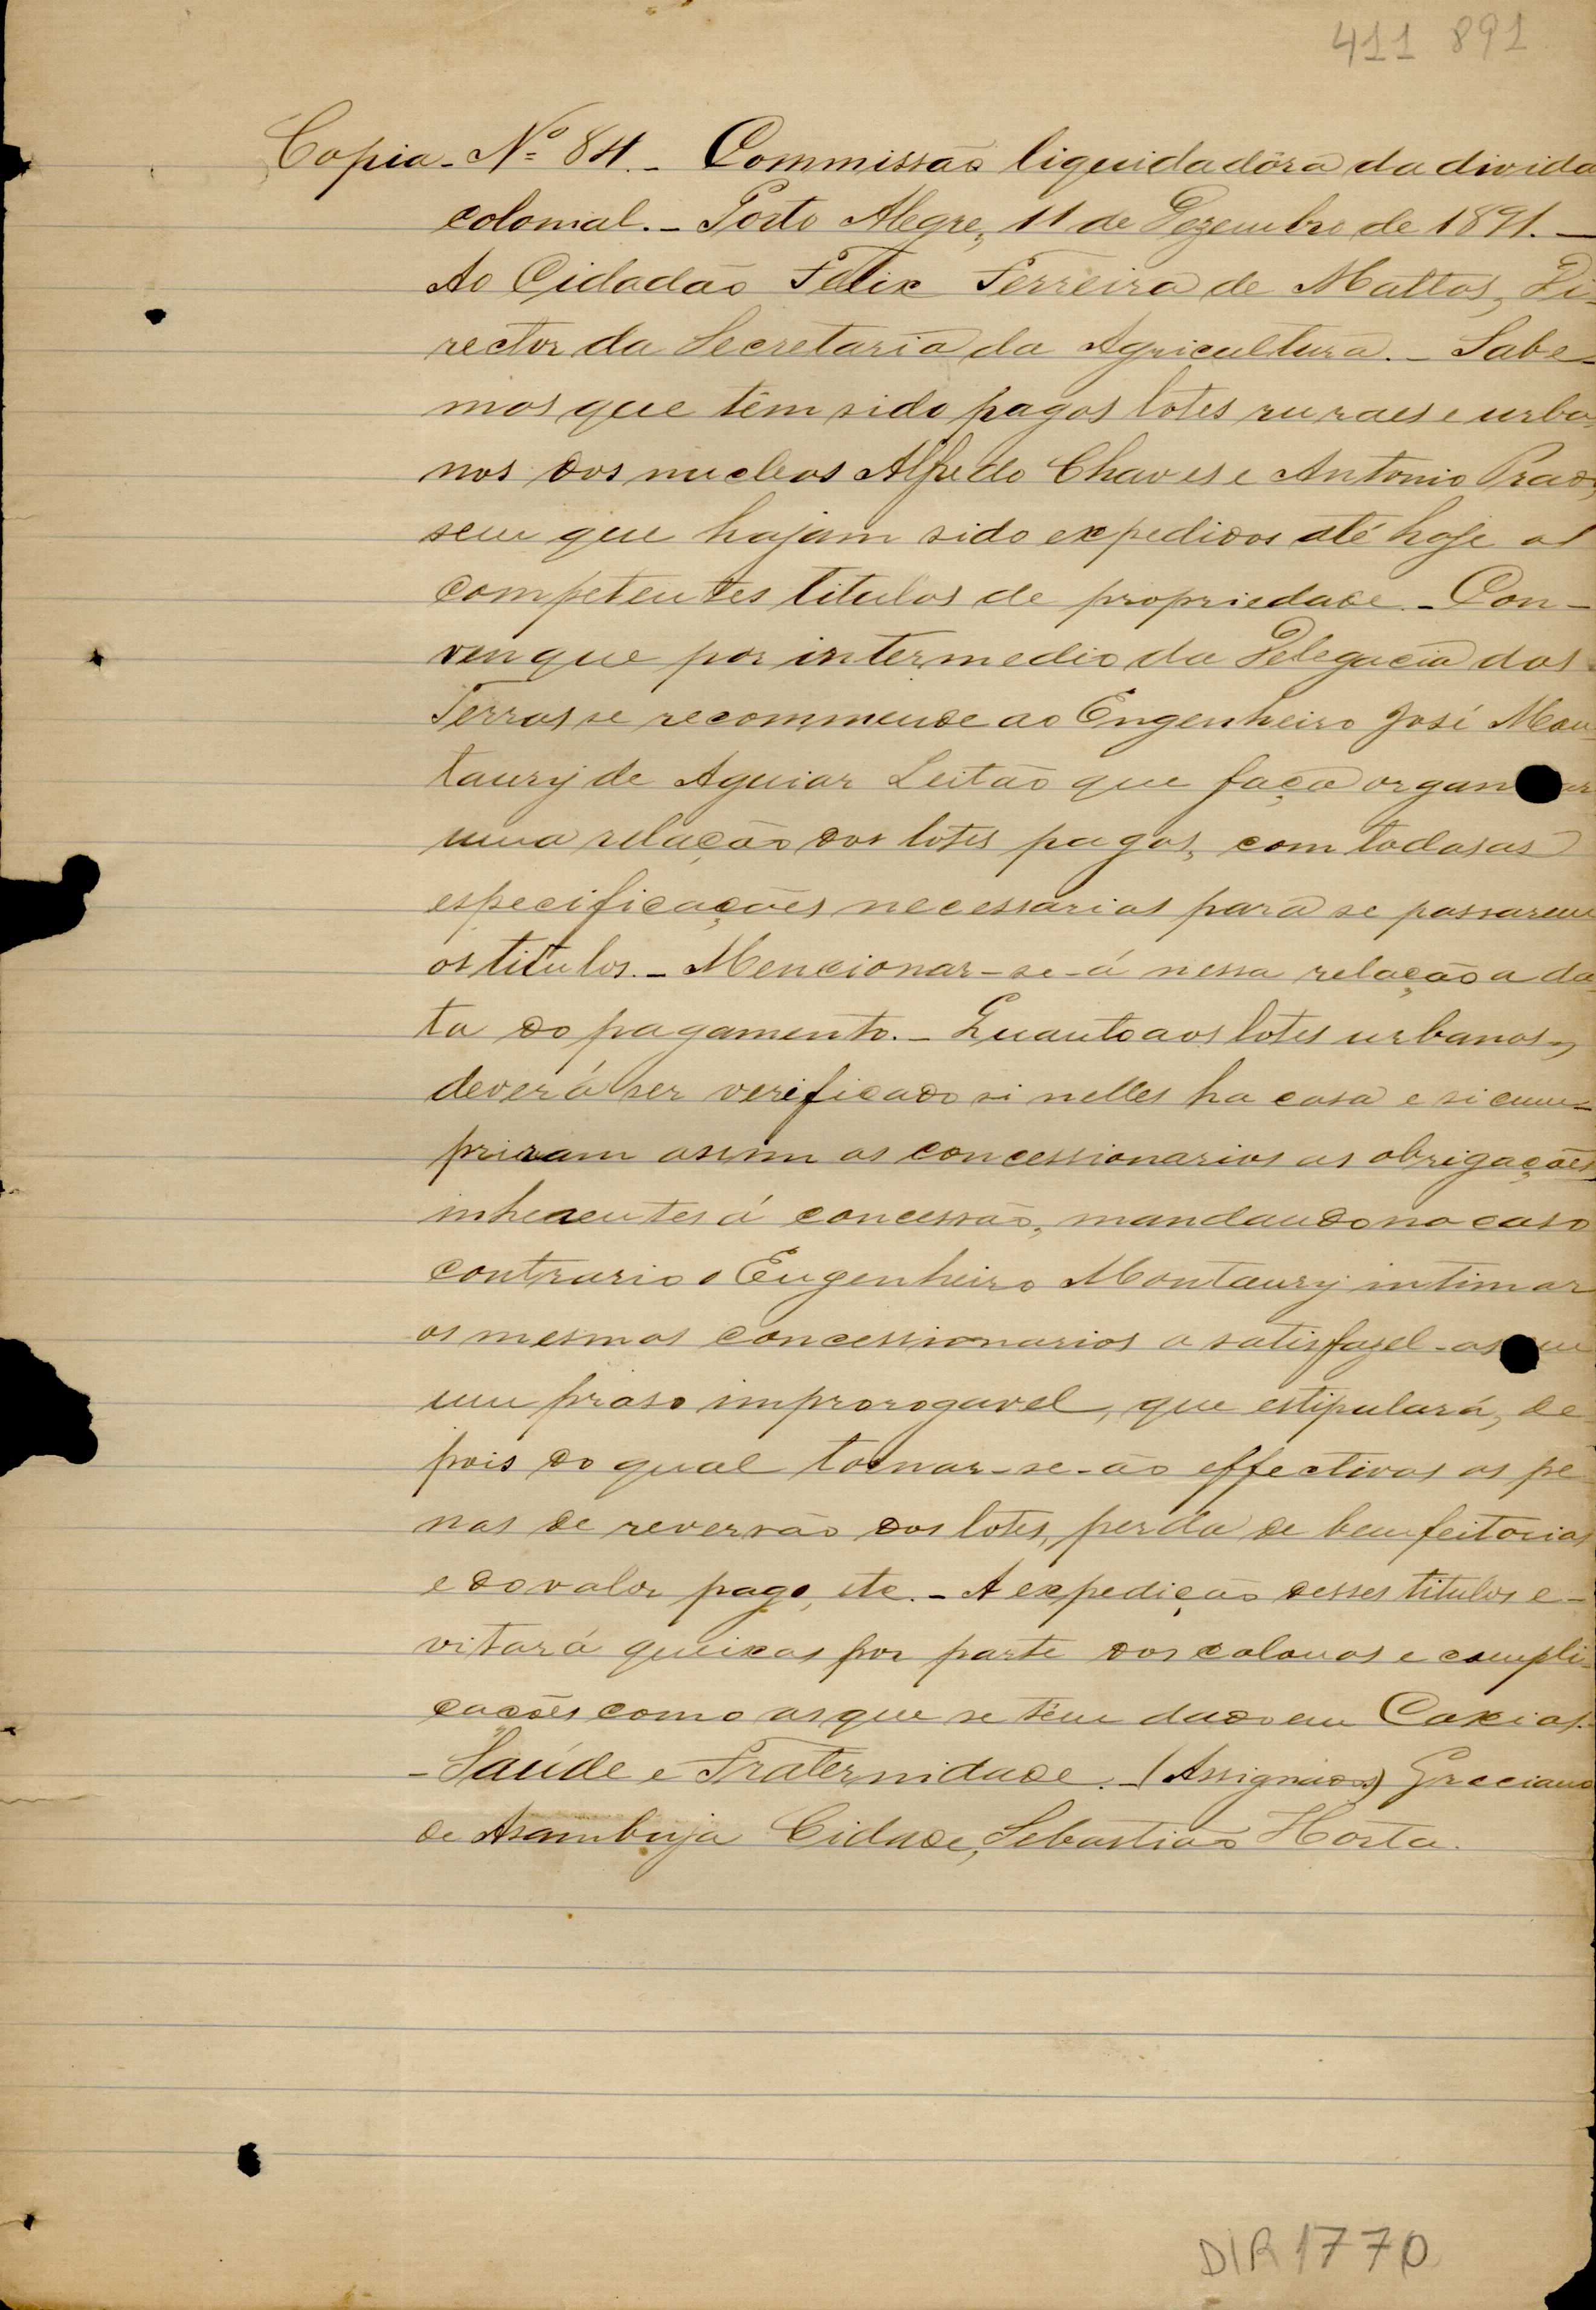 411 891
Copia - Nº 84. - Commissão liquidadôra da divida
colonial. - Porto Alegre, 11 de Dezembro de 1891. -
Ao Cidadão Felix Ferreira de Mattos, Di-
rector da Secretaria da Agricultura. - Sabe-
mos que têm sido pagos lotes ruraes e urba-
nos dos nucleos Alfredo Chaves e Antonio Prado
sem que hajam sido expedidos até hoje os
competentes titulos de propriedade. - Con-
vem que por intermedio da Delegacia das
Terras se recommende ao Engenheiro José Mon-
taury de Aguiar Leitão que faça organ ar
uma relação dos lotes pagos, com todas as
especificações necessarias para se passarem
os titulos. - Mencionar-se-á nessa relação a da-
ta do pagamento. - Quanto aos lotes urbanos,
deverá ser verificado si nelles ha casa e si cum-
priram assim os concessionarios as obrigações
inherentes á concessão, mandando no caso
contrario o Engenheiro Montaury intimar
os mesmos concessionarios a satisfazel-as em
um praso improrogavel, que estipulará, de
pois do qual tornar-se-ão effectivas as pe
nas de reversão dos lotes, perda de bemfeitorias
e do valor pago, etc. - A expedição desses titulos e-
vitará queixas por parte dos colonos e compli-
cações como as que se têm dado em Caxias.
- Saúde e Fraternidade. - (Assignados) Graciano
de Asambuja Cidade, Sebastião Horta.
DIR 1770